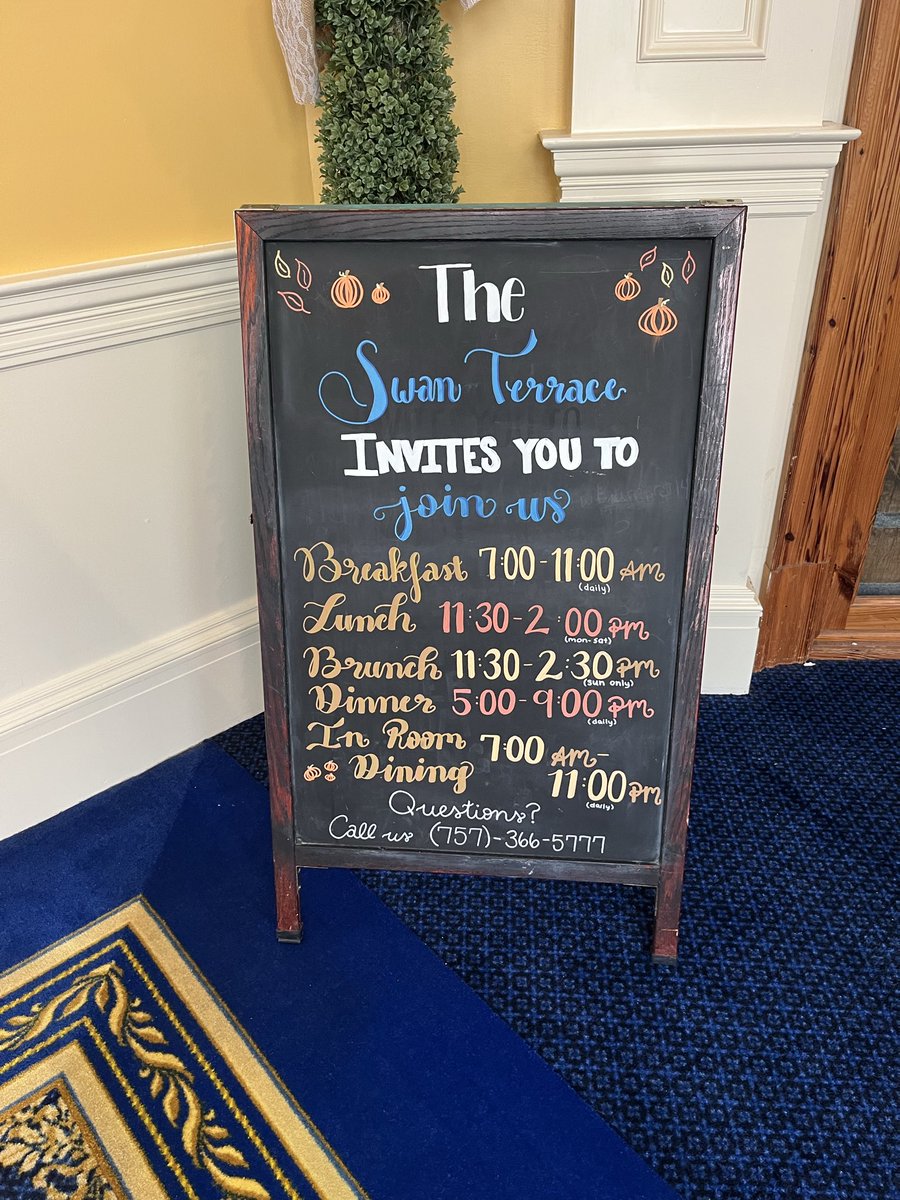 The
Swan Terrace
INVITES YOU TO
join us
Breakfast 7:00-11:00 AM
(daily)
Lunch 11:30-2:00 PM
(mon-sat)
Brunch 11:30-2:30 PM
(sun only)
Dinner 5:00-9:00 PM
(daily)
In Room 7:00 AM-
Dining 11:00 PM
(daily)
Questions?
Call us (757)-366-5777